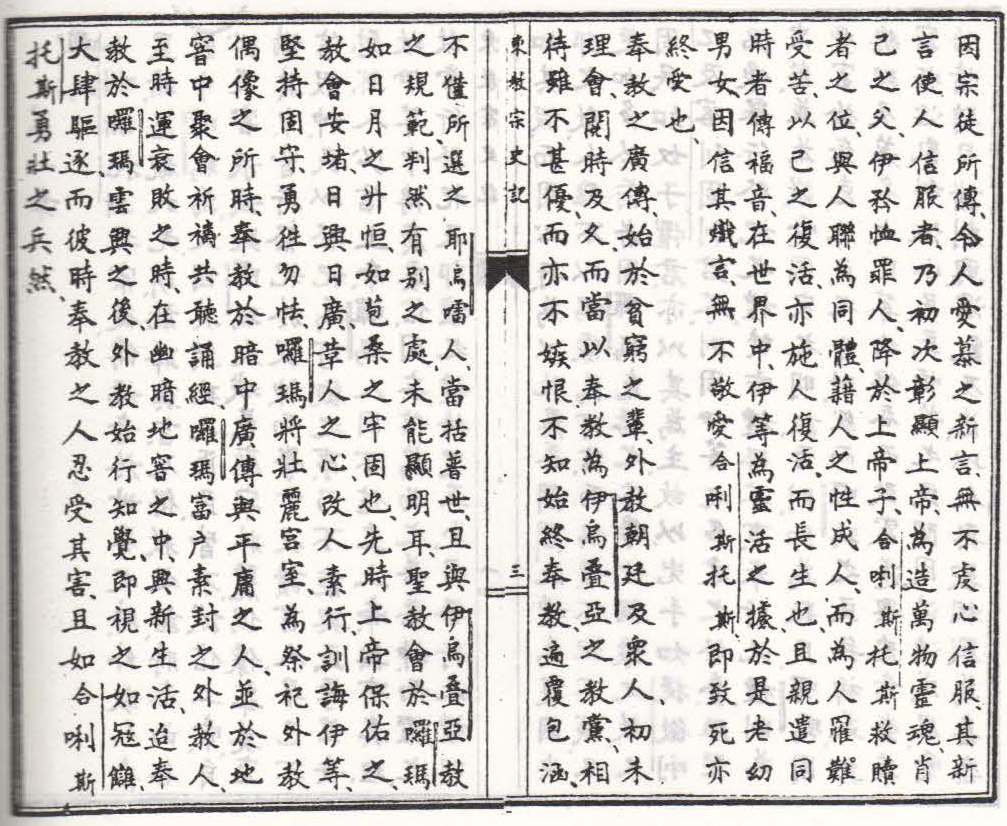 因宗徒所傳令人愛慕之新言無不虔心信服、其新
言使人信服者、乃初次彰顯上帝、為造萬物靈魂、肖
己之父、伊矜恤罪人、降於上帝子、合唎斯托斯救贖
者之位、與人聯為同體、藉人之性成人、而為人罹難
受苦、以己之復活、亦施人復活、而長生也、且親遣同
時者傳福音、在世界中、伊等為靈活之據、於是老幼
男女、因信其熾言、無不敬愛合唎斯托斯、即致死亦
終愛也、
奉教之廣傳、始於貧窮之輩、外教朝廷及眾人、初未
理會、閱時及久、而當以奉教為伊烏疊亞之教黨、相
待雖不甚優、而亦不嫉恨、不知始終奉教、遍覆包涵、
東教宗史記 三
不惟所選之耶烏嚅人、當括普世、且與伊烏疊亞教
之規範、判然有別之處、未能顯明耳、聖教會於囉瑪
如日月之升恒、如苞桑之牢固也、先時上帝保佑之、
教會安堵、日興日廣、草人之心、改人素行、訓誨伊等、
堅持固守、勇徃勿怯、囉瑪將壯麗宮室、為祭祀外教
偶像之所時、奉教於暗中廣傳、與平庸之人、並於地
窖中聚會祈禱、共聽誦經、囉瑪富户素封之外教人、
至時運衰敗之時、在幽暗地窖之中、興新生活、迨奉
教於囉瑪雲興之後、外教始行知覺、即視之如冦讎、
大肆驅逐、而彼時奉教之人忍受其害、且如合唎斯
托斯勇壯之兵然、